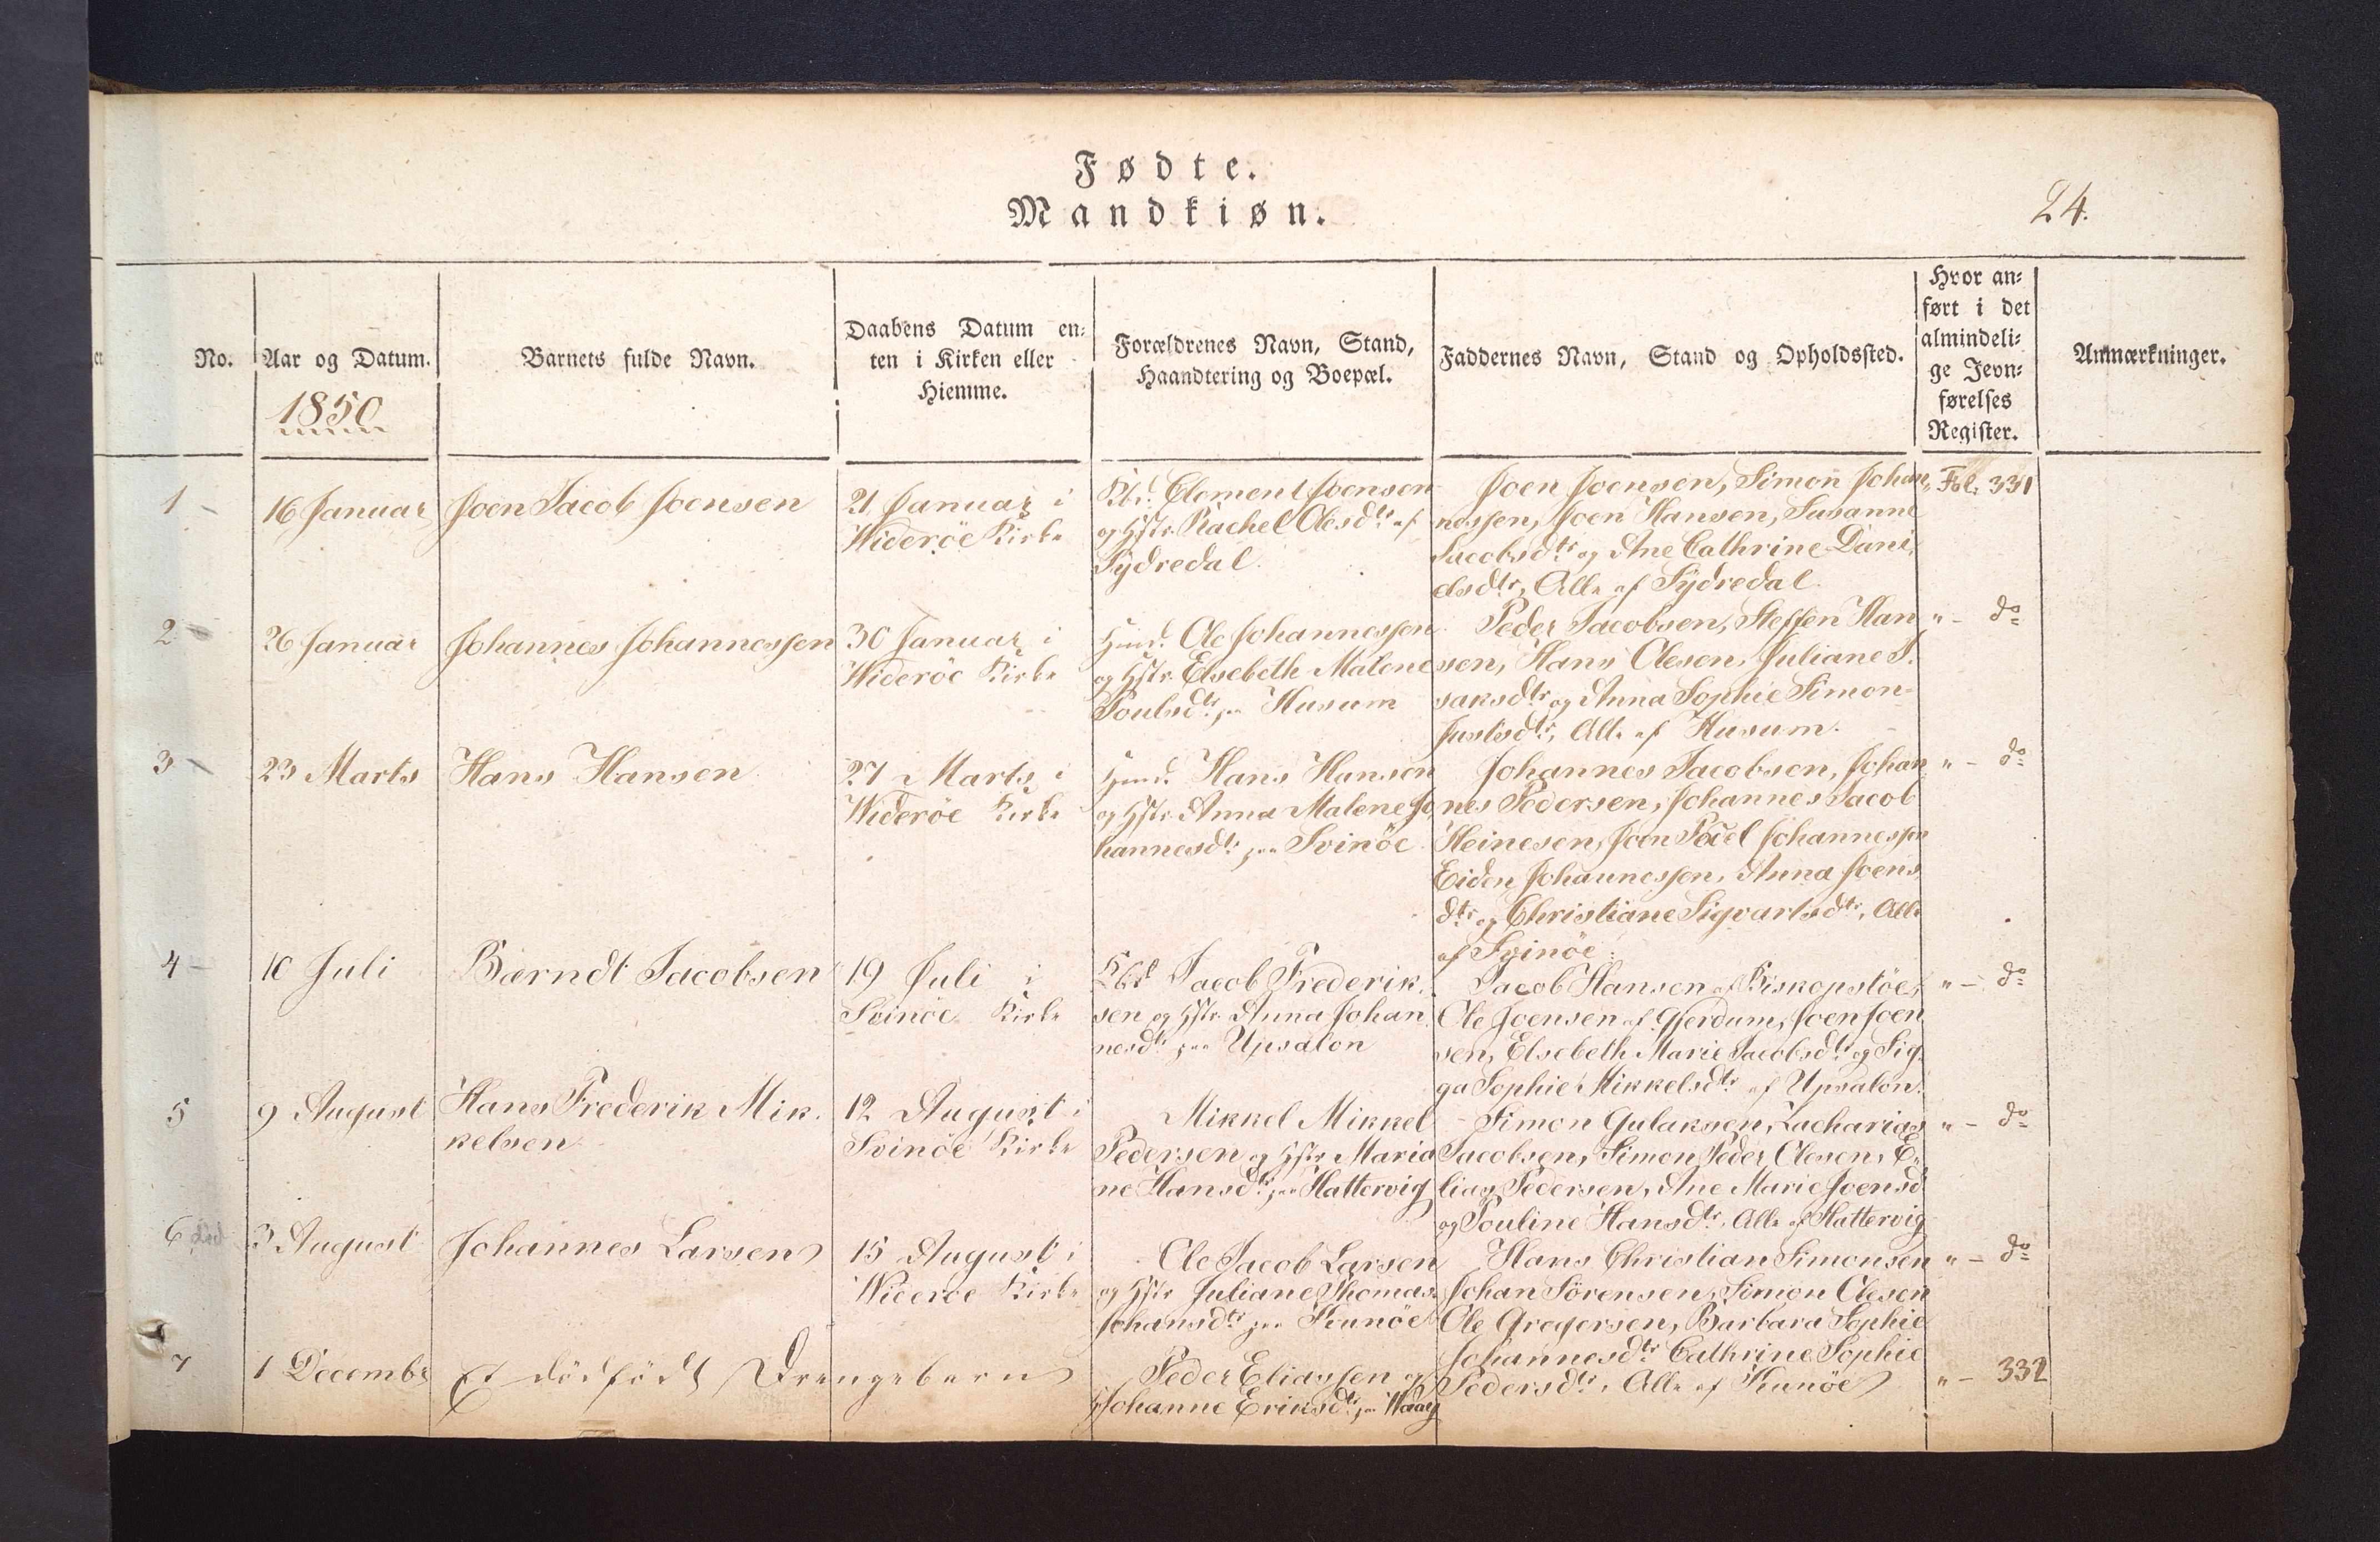 Fødte.
Mandkiøn.
24.
No.
Aar og Datum.
1850
Barnets fulde Navn.
Daabens Datum en-
ten i Kirken eller
Hiemme.
Forældrenes Navn, Stand,
Haandtering og Boepæl.
Faddernes Navn, Stand og Opholdssted.
Hvor an-
ført i det
almindeli-
ge Jevn-
førelses
Register.
Anmærkninger.
1
16 Januar
Joen Jacob Joensen
21 Januar i
Wideröe Kirke
Kbd. Clement Joensen
og Hstr. Rachel Olesdtr af
Sydredal
Joen Joensen, Simon Johan
nessen, Joen Hansen, Susanne
Jacobsdtr og Ane Cathrine Dani
elsdtr, Alle af Sydredal
Fol. 331
2
26 Januar
Johannes Johannessen
30 Januar i
Wideröe Kirke
Hmd. Ole Johannessen
og Hstr. Elsebeth Malene
Poulsdtr paa Husum
Peder Jacobsen, Steffen Han
sen, Hans Olesen, Juliane I.
saksdtr og Anna Sophie Simon-
Justsdtr, Alle af Husum.
" - do
3
23 Marts
Hans Hansen
27 Marts i
Wideröe Kirke
Hmd. Hans Hansen
og Hstr. Anna Malene Jo
hannesdtr paa Svinöe
Johannes Jacobsen, Johan
nes Pedersen, Johannes Jacob
Heinesen, Joen Poul Johannessen
Eiden Johannessen, Anna Joens
dtr og Christiane Sigvartsdtr, Alle
af Svinöe.
" - do
4
10 Juli
Bærndt Jacobsen
19 Juli i
Svinöe Kirke
Kbd. Jacob Frederik
sen og Hstr. Anna Johan
nesdtr paa Upsalon
Jacob Hansen af Biskopstöe,
Ole Joensen af Gjerdum, Joen Joen
sen, Elsebeth Marie Jacobsdtr og Sig
ga Sophie Mikkelsdtr af Upsalon.
" - do
5
9 August
Hans Frederik Mik.
kelsen
12 August i
Svinöe Kirke
Mikkel Mikkel
Pedersen og Hstr. Maria
ne Hansdtr paa Hattervig
Simon Gulaksen, Zacharias
Jacobsen, Simon Peder Olesen, E.
lias Pedersen, Ane Marie Joensd
og Pouline Hansdtr, Alle af Hattervig
" - do
6
3 August
Johannes Larsen
15 August i
Wideröe Kirke
Ole Jacob Larsen
og Hstr. Juliane Thomas.
Johansdtr paa Kunöe
Hans Christian Simonsen
Johan Sörensen, Simon Olesen
Ole Gregersen, Barbara Sophie
Johannesdtr Cathrine Sophie
Pedersdtr, Alle af Kunöe
" - do
7
1 Decembr
Et dödfödt Drengebarn
Peder Eliassen og
Johanne Eriksdtr paa Waag
" - 332